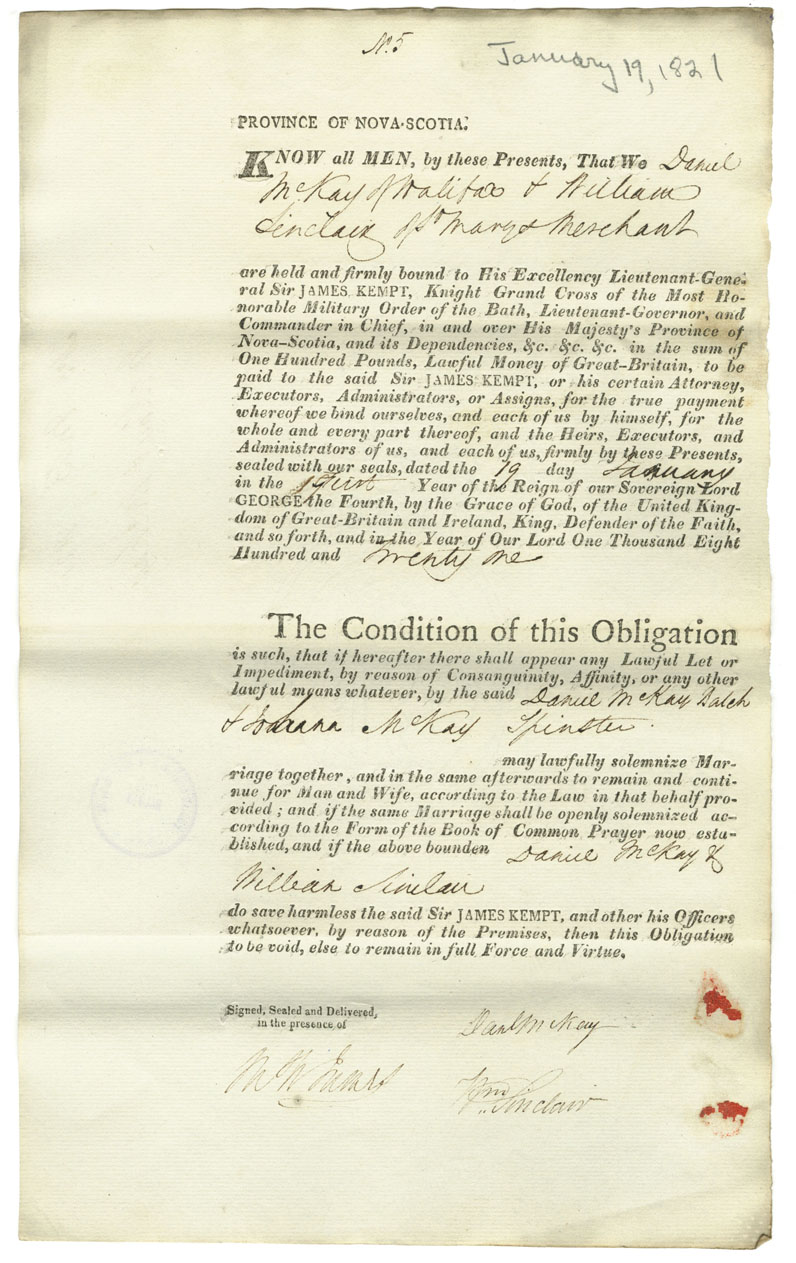 No. 5
January 19, 1821
PROVINCE OF NOVA-SCOTIA.
KNOW all MEN, by these Presents, That We Daniel
McKay of Halifax & William
Sinclair of St Marys Merchant
are held and firmly bound to His Excellency Lieutenant-Gene-
ral Sir JAMES KEMPT, Knight Grand Cross of the Most Ho-
norable Military Order of the Bath, Lieutenant-Governor, and
Commander in Chief, in and over His Majesty's Province of
Nova-Scotia, and its Dependencies, &c. &c. &c. in the sum of
One Hundred Pounds, Lawful Money of Great-Britain, to be
paid to the said Sir JAMES KEMPT, or his certain Attorney,
Executors, Administrators, or Assigns, for the true payment
whereof we bind ourselves, and each of us by himself, for the
whole and every part thereof, and the Heirs, Executors, and
Administrators of us, and each of us, firmly by these Presents,
sealed with our seals, dated the 19 day January
in the first Year of the Reign of our Sovereign Lord
GEORGE the Fourth, by the Grace of God, of the United King-
dom of Great-Britain and Ireland, King, Defender of the Faith,
and so forth, and in the Year of Our Lord One Thousand Eight
Hundred and Twenty one
The Condition of this Obligation
is such, that if hereafter there shall appear any Lawful Let or
Impediment, by reason of Consanguinity, Affinity, or any other
lawful means whatever, by the said Daniel McKay Batch
& McKay Spinster
may lawfully solemnize Mar-
riage together, and in the same afterwards to remain and conti-
nue for Man and Wife, according to the Law in that behalf pro-
vided; and if the same Marriage shall be openly solemnized ac-
cording to the Form of the Book of Common Prayer now esta-
blished, and if the above bounden Daniel McKay &
William Sinclair
do save harmless the said Sir JAMES KEMPT, and other his Officers
whatsoever, by reason of the Premises, then this Obligation
to be void, else to remain in full Force and Virtue.
Signed, Sealed and Delivered,
in the presence of
Danl McKay
Wm Sinclair